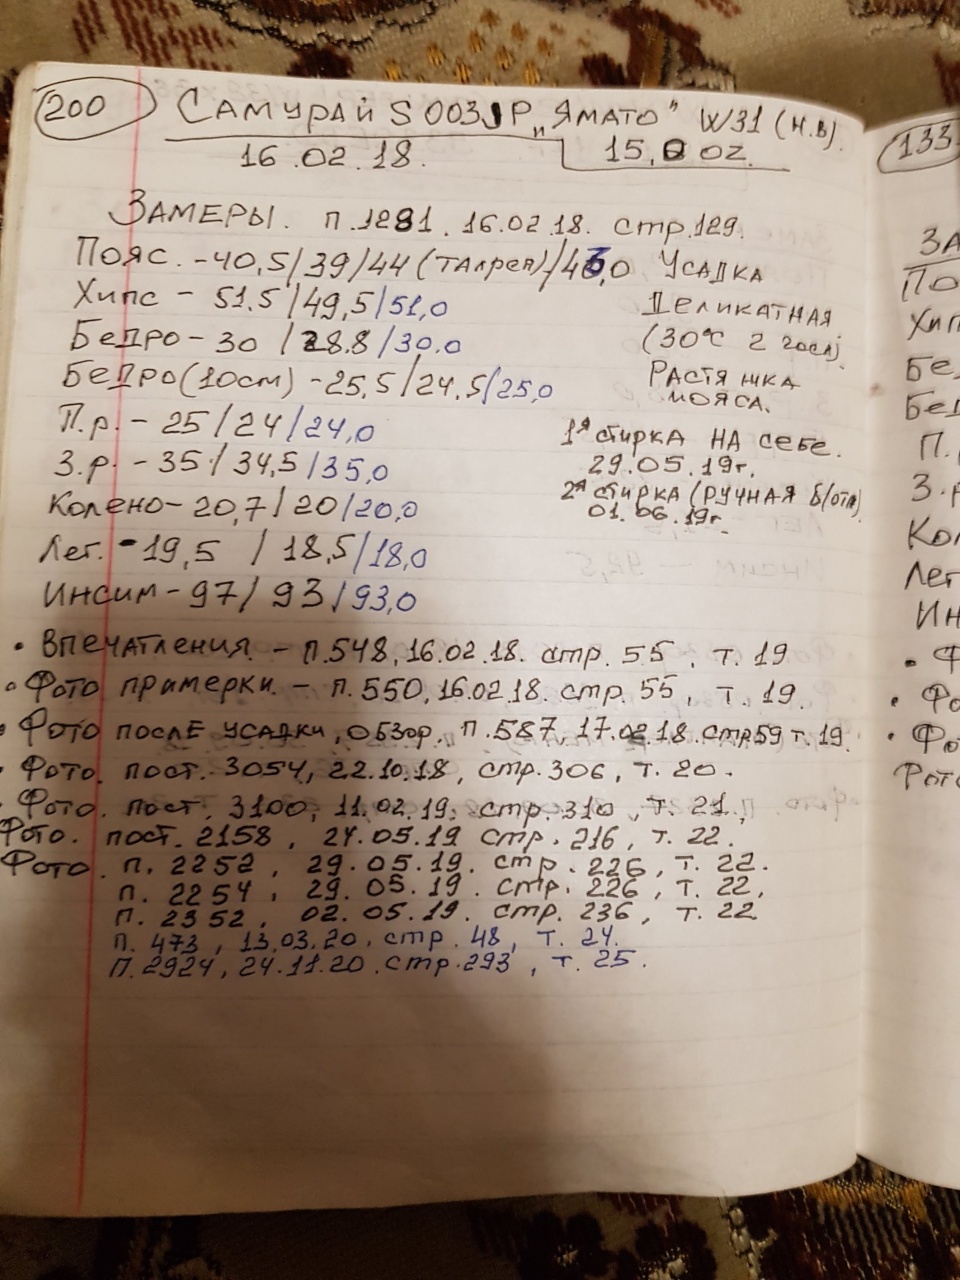 200 Самурай S003JP „Ямато" W31 (н.в).
16.02.18. 15,0 oz.
Замеры. п.1281. 16.02.18. стр.129.
Пояс. - 40,5/39/44 (талрея)/43,0 Усадка
Хипс - 51.5/49,5/51,0 Деликатная
Бедро - 30 /28.8/30.0 (30°С 2 часа).
Бедро (10см) - 25,5/24,5/25,0 Растяжка пояса.
П.р. - 25/24/24,0 1я стирка на себе.
З.р. - 35/34,5/35,0 29.05.19г.
Колено - 20,7/20/20,0 2я стирка (ручная б/отж)
01.06.19г.
Лег. - 19,5 / 18,5/18,0
Инсим - 97/93/93,0
• Впечатления. - п.548, 16.02.18. стр. 55, т. 19
• Фото примерки. - п. 550, 16.02.18. стр. 55, т. 19.
• Фото после усадки, обзор. п.587, 17.02.18. стр59 т.19.
• Фото. пост. 3054, 22.10.18, стр. 306, т. 20.
• Фото. пост. 3100, 11.02.19. стр. 310, т. 21,
Фото. пост. 2158, 24.05.19 стр. 216, т. 22.
Фото. п. 2252, 29.05.19. стр. 226, т. 22.
п. 2254, 29.05.19. стр. 226, т. 22,
п. 2352, 02.05.19. стр. 236, т. 22
п. 473, 13.03.20, стр. 48, т. 24.
п. 2924, 24.11.20. стр. 293, т. 25.
133
За
По
Хип
Бе
Бед
П.
З.р
Кол
Лег
Ин
• Ф
• Фо
• Фо
Фото